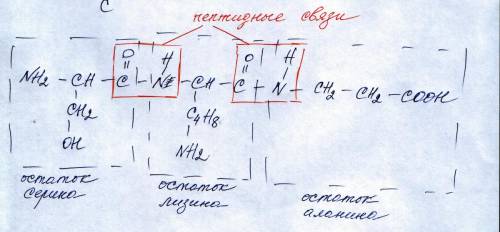 C
пептидные связи
O H O H
NH2 – CH – C – N – CH – C – N – CH2 – CH2 – COOH
CH2 C4H8
OH NH2
остаток серина
остаток лизина
остаток аланина